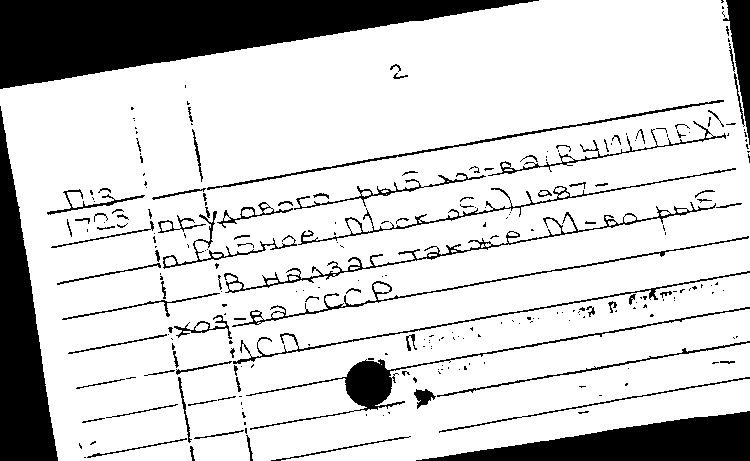 2
П13
1723
прудового рыб. хоз-ва (ВНИИПРХ).-
п. Рыбное (Моск. обл.), 1987-
В надзаг. также: М-во рыб.
хоз-ва СССР.
ДСП.
в